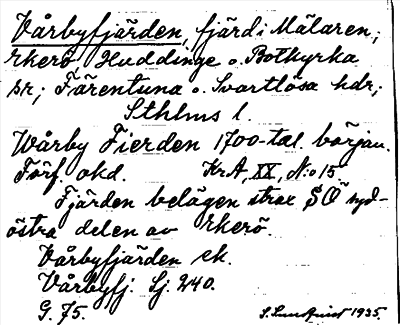 Vårbyfjärden, fjärd i Mälaren;
Ekerö Huddinge o. Botkyrka
sr; Färentuna o. Svartlösa hdr;
Sthlms l.
Wårby Fierden 1700-tal. början.
Förf. okd. KrA, XX, N:o 15.
Fjärden belägen strax SÖ syd-
östra delen av Ekerö.
Vårbyfjärden ek.
Vårbyfj. Sj. 240.
G. 75. S. Lundquist 1935.